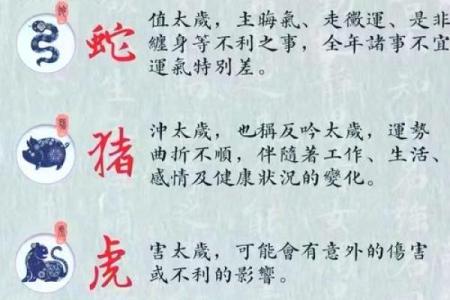 蛇
值太歲，主晦氣、走黴運、是非
纏身等不利之事，全年諸事不宜
運氣特別差。
猪
沖太歲，也稱反吟太歲，運勢
曲折不順，伴隨著工作、生活、
感情及健康狀況的變化。
虎
害太歲，可能會有意外的傷害
或不利的影響。